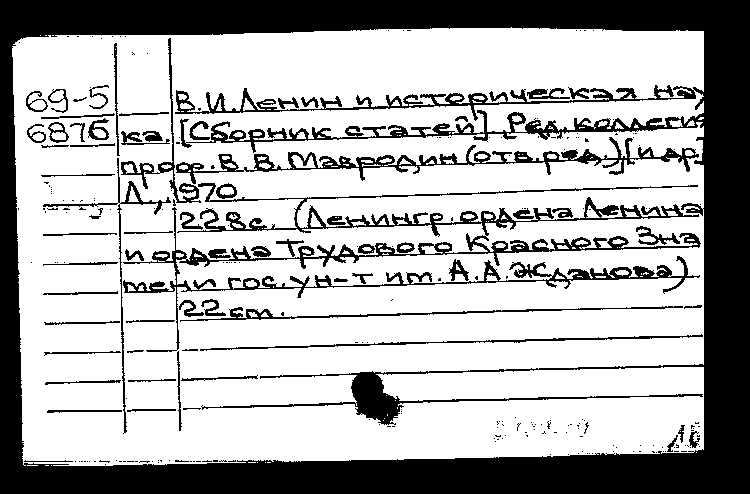 69-5 В.И.Ленин и историческая нау
6876 ка. [Сборник статей] Ред. коллегия
проф. В. В. Мавродин (отв. ред.) [и др]
Л., 1970.
228с. (Ленингр. ордена Ленина
и ордена Трудового Красного Зна
мени гос. ун-т им. А. А. Жданова)
22 см.
16